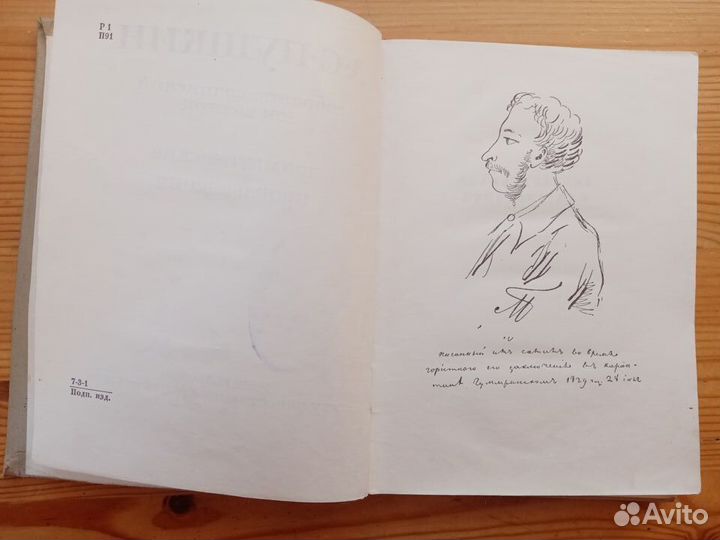 Р 1
П91
7-3-1
Подп. изд.
писанный имъ самимъ во время
горестного его заключенія въ каран-
тинѣ Гумранскомъ 1829 год 28 іюля
Avito